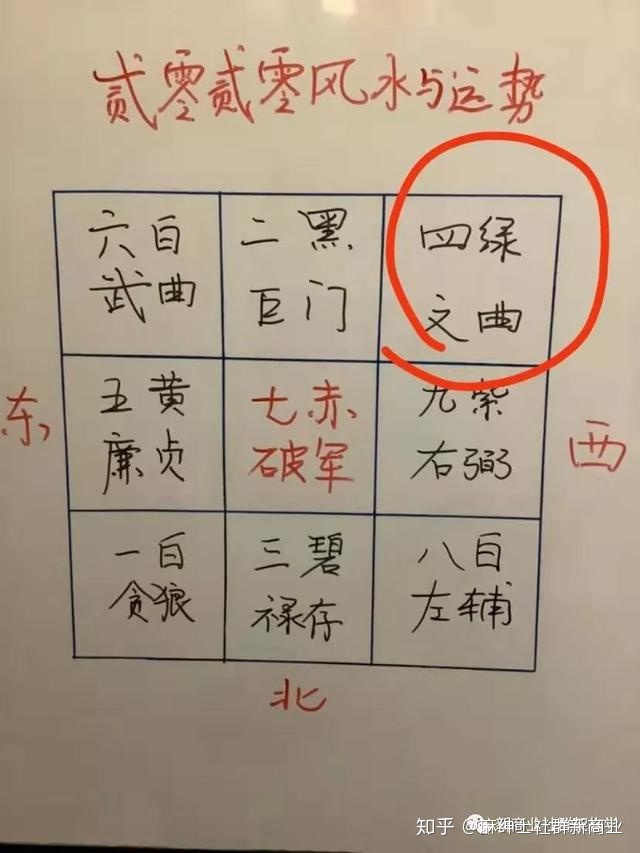 贰零贰零风水与运势
六白 二黑 四绿
武曲 巨门 文曲
东
五黄 七赤 九紫
廉贞 破军 右弼
西
一白 三碧 八白
贪狼 禄存 左辅
北
知乎 @麻绅士社群新商业